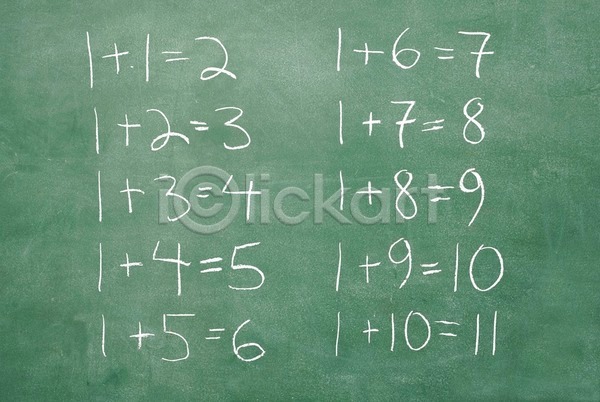 1+1=2
1+2=3
1+3=4
1+4=5
1+5=6
1+6=7
1+7=8
1+8=9
1+9=10
1+10=11
iclickart